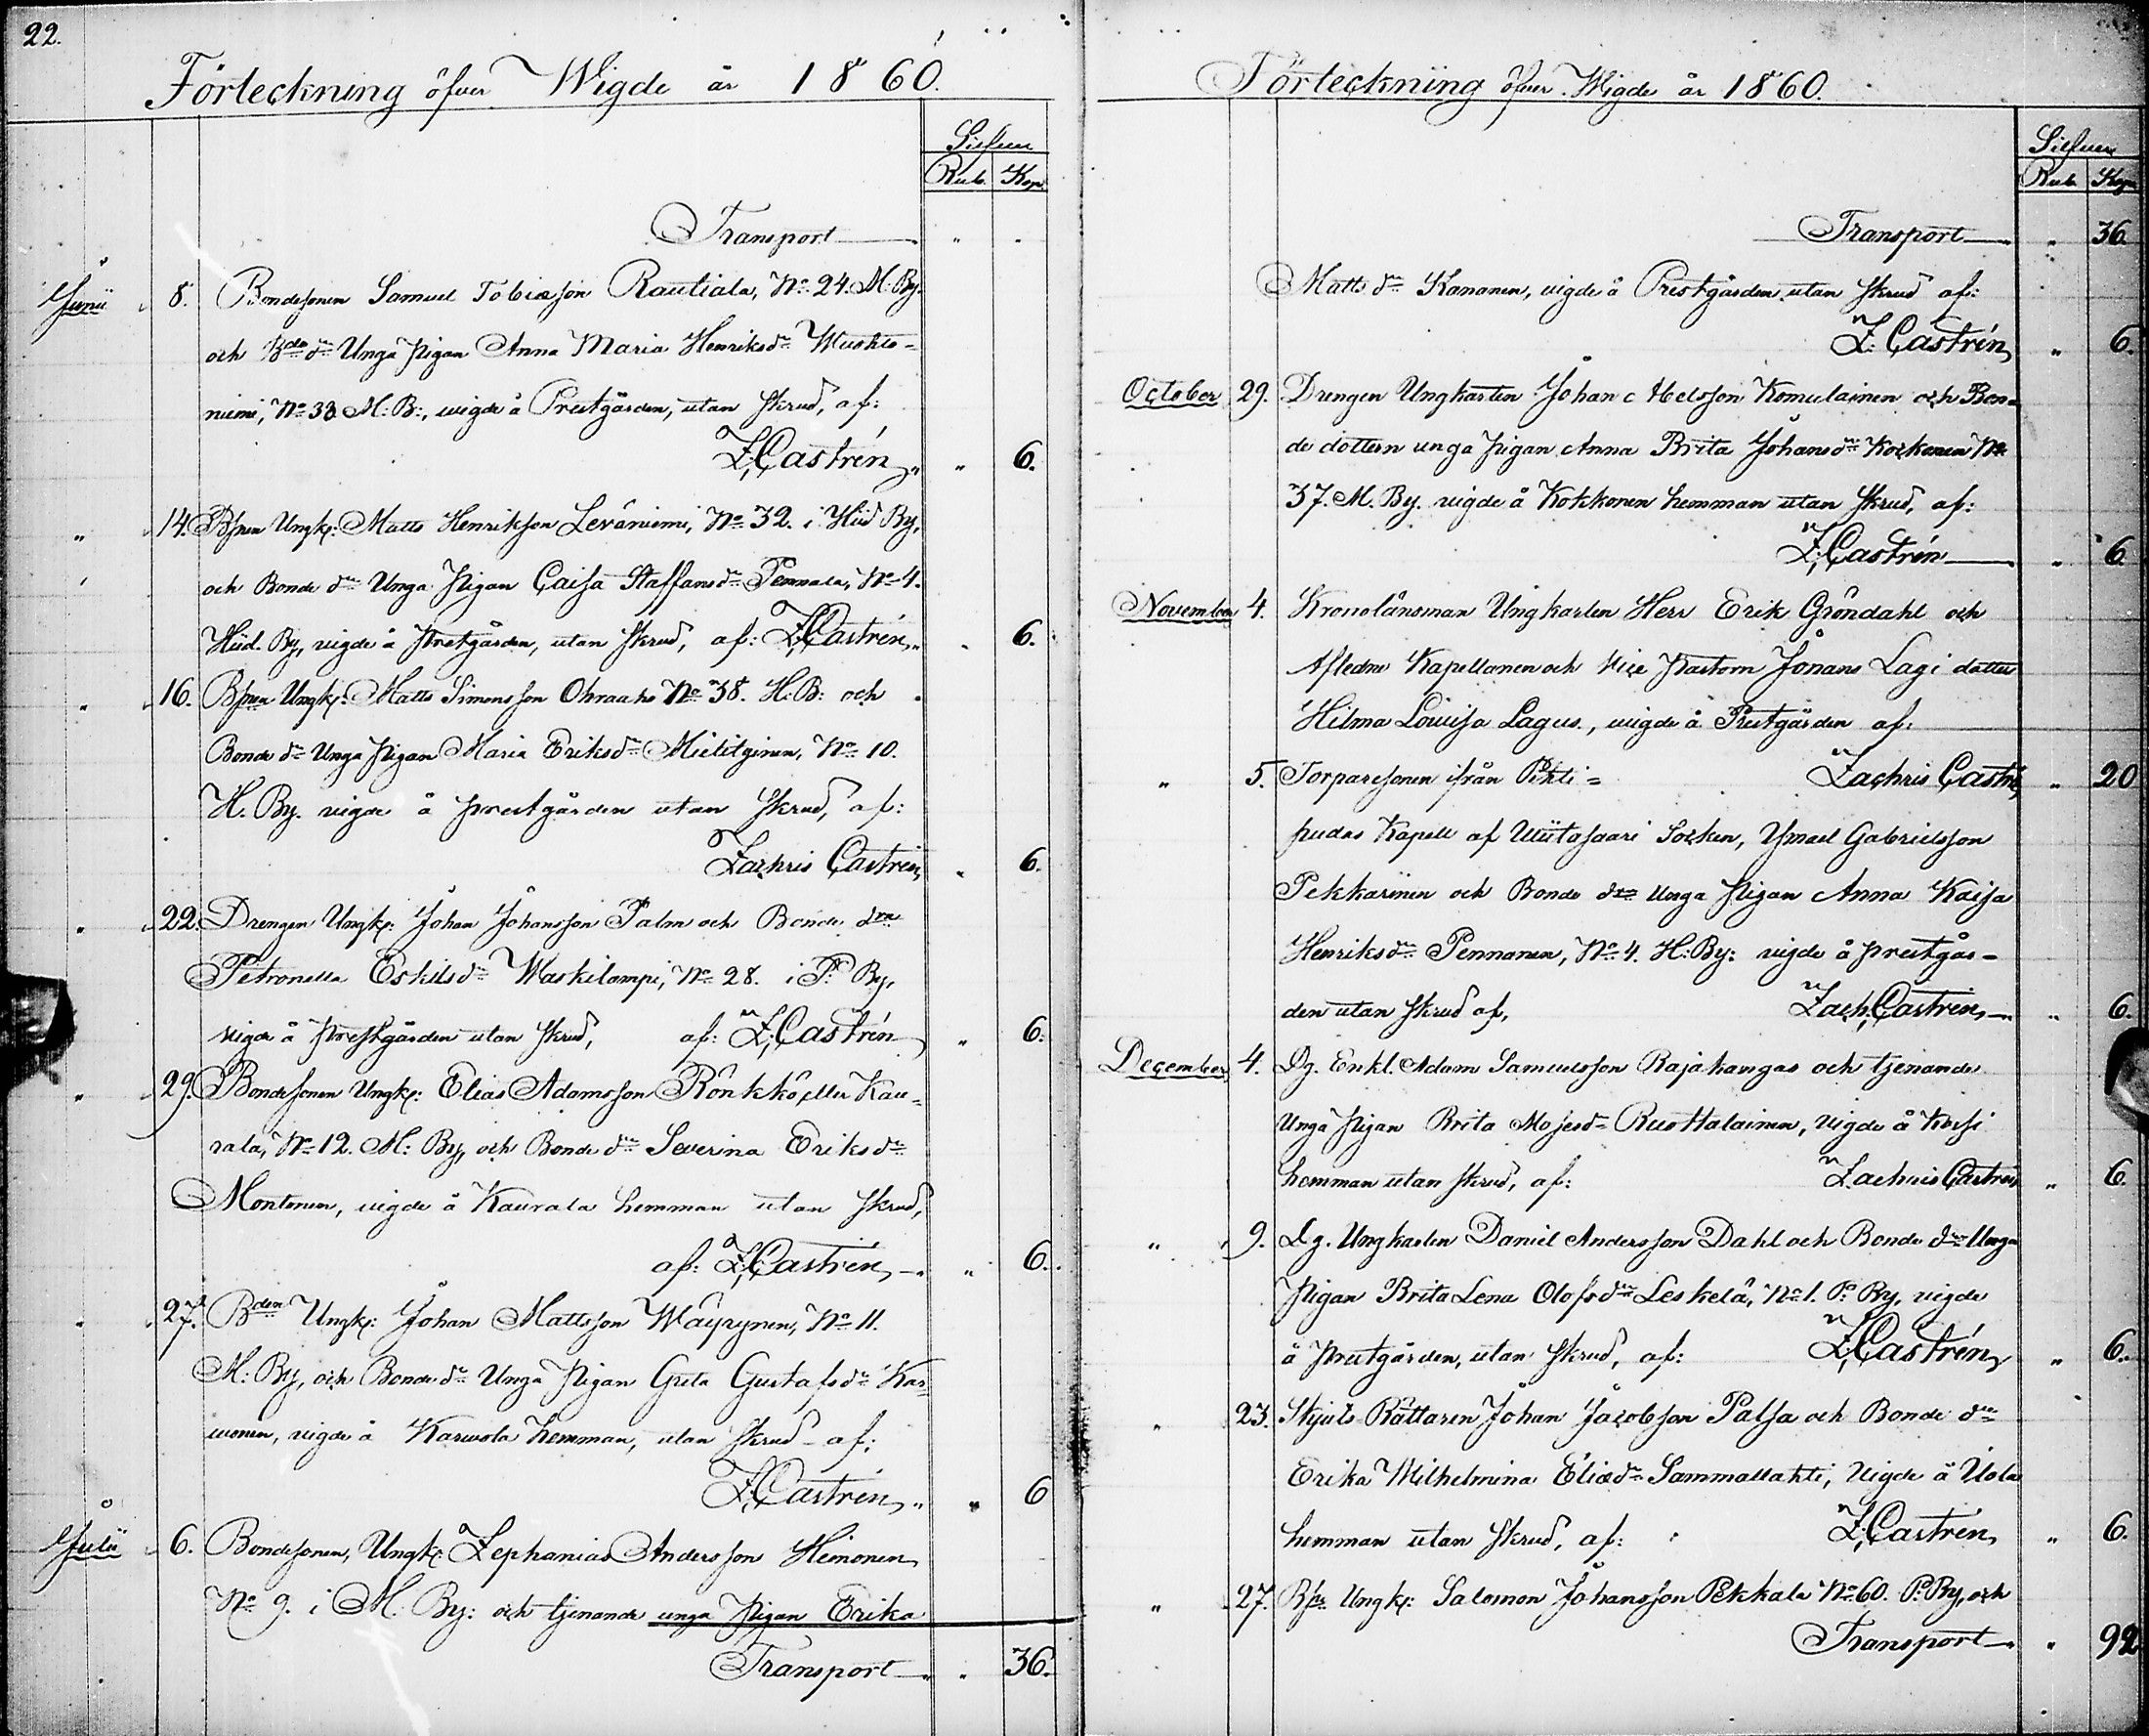 22.
Förteckning öfver Wigde år 1860.
Silfver
Rub. Kop.
Transport " "
Junii 8. Bondesonen Samuel Tobiasson Rautiala, No 24. M. By.
och Bde dn Unga Pigan Anna Maria Henriksdr
niemi, No 33 M. B:, vigde å Prestgården, utan Skrud, af:
Z. Castrén " " 6.
" 14. Bsnen Ungk: Matts Henriksson Leväniemi, No 32. i Hüd By,
och Bonde dn Unga Pigan Caisa Staffansdr Pennala, No 4.
Hüd. By, vigde å Prestgården, utan Skrud, af: Z. Castrén " " 6.
" 16. Bsnen Ungk: Matts Simonsson Ohraaho No 38. H. B: och
Bonde dn Unga Pigan Maria Eriksdr No 10.
H. By. vigde å prestgården utan Skrud, af:
Zachris Castrén " 6.
" 22. Drengen Ungk: Johan Johansson Palm och Bonde drn
Petronella Eskilsdr Waskilampi, No 28. i P. By,
vigde å Prestgården utan Skrud, af: Z. Castrén " 6.
" 29. Bondesonen Ungk: Elias Adamsson Rönkkö eller Kau-
rala, No 12. M: By, och Bonde dn Severina Eriksdr
Montonen, vigde å Kaurala hemman utan Skrud,
af: Z. Castrén " " 6.
" 27. Bden Ungk: Johan Mattsson Wäyrynen, No 11.
M: By, och Bonde dn Unga Pigan Greta Gustafsdr Kar-
wonen, vigde å Karwola hemman, utan Skrud af:
Z. Castrén " " 6
Julii 6. Bondesonen, Ungk: Zephanias Andersson Heinonen
No 9. i M. By: och tjenande unga Pigan Erika
Transport " " 36.
Förteckning öfver Wigde år 1860.
Silfver
Rub. Kop.
Transport " 36.
Matts dr Kananen, vigde å Prestgården utan Skrud af:
Z. Castrén " 6.
October 29. Drengen Ungkarlen Johan Komulainen och Bon-
de dottern unga pigan Anna Brita Johansdr Kokkonen No
37. M. By. vigde å Kokkonen hemman utan Skrud, af:
Z. Castrén " 6
November 4. Kronolänsman Ungkarlen Herr Erik Gröndahl och
Afledne Kapellanen och Vice Pastorn Jonans Lagi dotter
Hilma Lovisa Lagus., vigde å Prestgården af:
" 5. Torparesonen ifrån Pihti= Zachris Castrén " 20
pudas Kapell af Wiitasaari Socken, Ismael Gabrielsson
Pekkarinen och Bonde drn Unga Pigan Anna Kaisa
Henriksdr Pennanen, No 4. H: By: vigde å prestgår-
den utan Skrud af, Zach. Castrén " 6.
December 4. Dg. Enkl. Adam Samuelsson Rajakangas och tjenande
Unga Pigan Brita Mosesdr Ruottalainen, vigde å
hemman utan Skrud, af: Zachris Castrén " 6.
" 9. Dg. Ungkarlen Daniel Andersson Dahl och Bonde drn Unga
Pigan Brita Lena Olofsdr Leskelä, No 1. P: By, vigde
å Prestgården, utan Skrud, af: Z. Castrén " 6.
" 23. Skjuts Rättaren Johan Jacobsson Palsa och Bonde dn
Erika Wilhelmina Eliædr Sammallahti, vigde å
hemman utan Skrud, af: Z. Castrén " 6.
" 27. Bsn Ungk: Salomon Johansson Pekkala No 60. P: By, och
Transport " 92